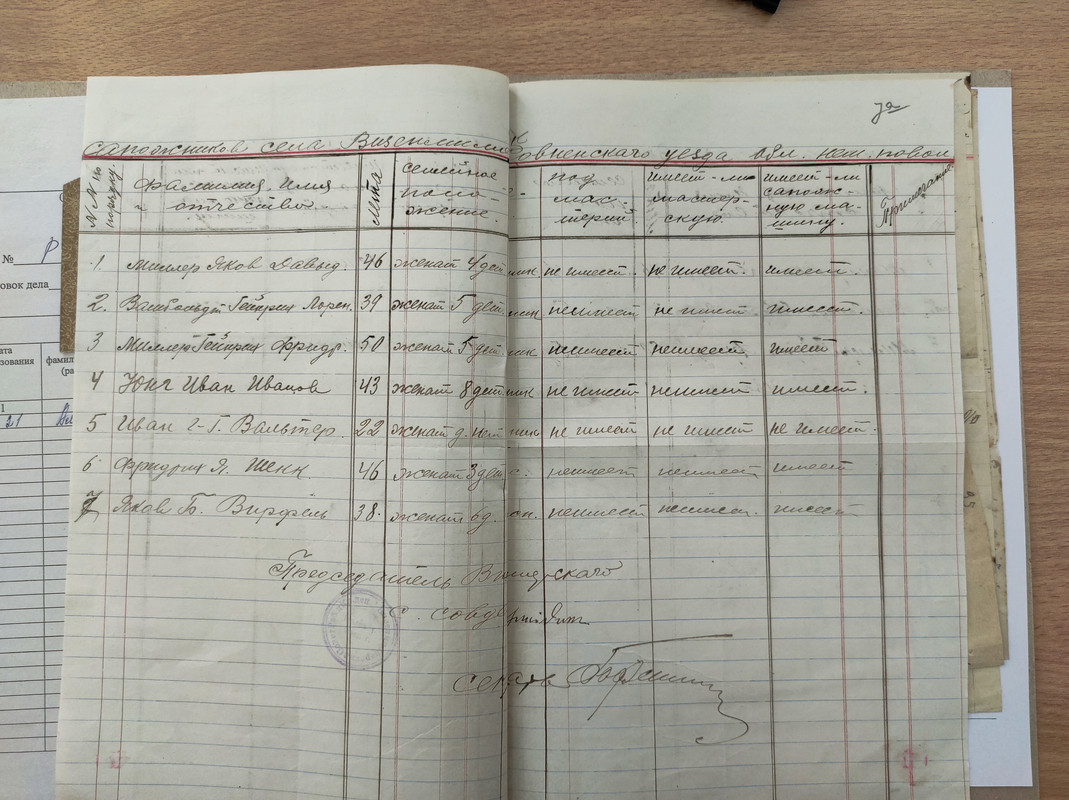 сапожников села Визенмиллер Ровненского уезда обл. нем. повол
№№ по порядку.
Фамилия, имя и отчество.
Лета
семейное поло-жение.
под мас-терий.
имеет-ли мастер-скую.
имеет-ли сапож-ную ма-шину.
Примечание
1. Миллер Яков Давыд. 46 женат 4 дет. не имеет. не имеет. имеет.
2. Вамбольдт Гейнрих Лорен. 39 женат 5 дет. неимеет не имеет. имеет.
3 Миллер Гейнрих Фридр. 50 женат 5 дет. неимеет неимеет. имеет
4 Юнг Иван Иванов 43 женат 8 дет. не имеет неимеет имеет.
5 Иван Г-Г. Вальтер. 22 женат д. нет не имеет не имеет не имеет.
6 Фридрих Я. Шенк 46 женат 3 дет. с. неимеет неимеет имеет
7 Яков Б. Вирфель 38. женат 6 д. неимеет неимеет. имеет
Председатель
с.
секретарь
№
овок дела
ата
зования
фамил
(ра
21